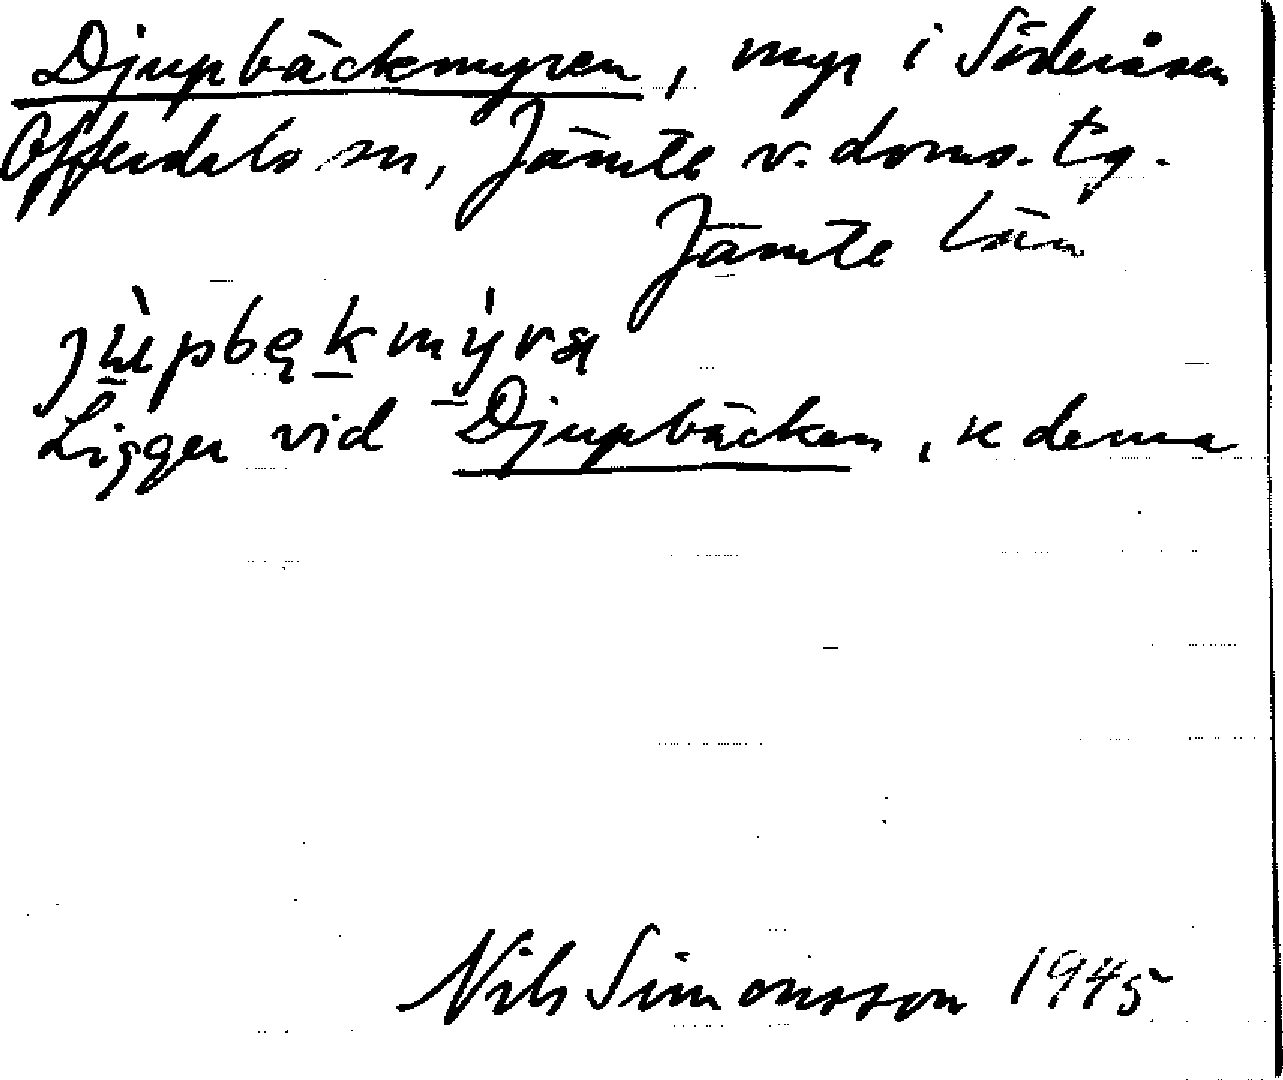 Djupbäckmyren, myr i Söderåsen
Offerdals sn, Jämte v. doms. tg.
Jämte län
Ligger vid Djupbäcken, se denna
Nils Simonsson 1945